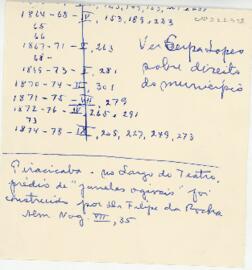 1864-68-IV, 153, 185, 253
65
66
1867-71-V, 263
68-
1869-73-II, 281
1870-74-II, 301
1871-75-VII, 279
1872-76-IV, 265, 291
73
1874-78-IX, 205, 227, 249, 273
Ver Serpa Lopes
sobre direito
do municipio
Piracicaba - no Largo do Teatro,
prédio de "janelas ogivais" foi
construido por Dr Felipe da Rocha
sem Nog. VII, 35